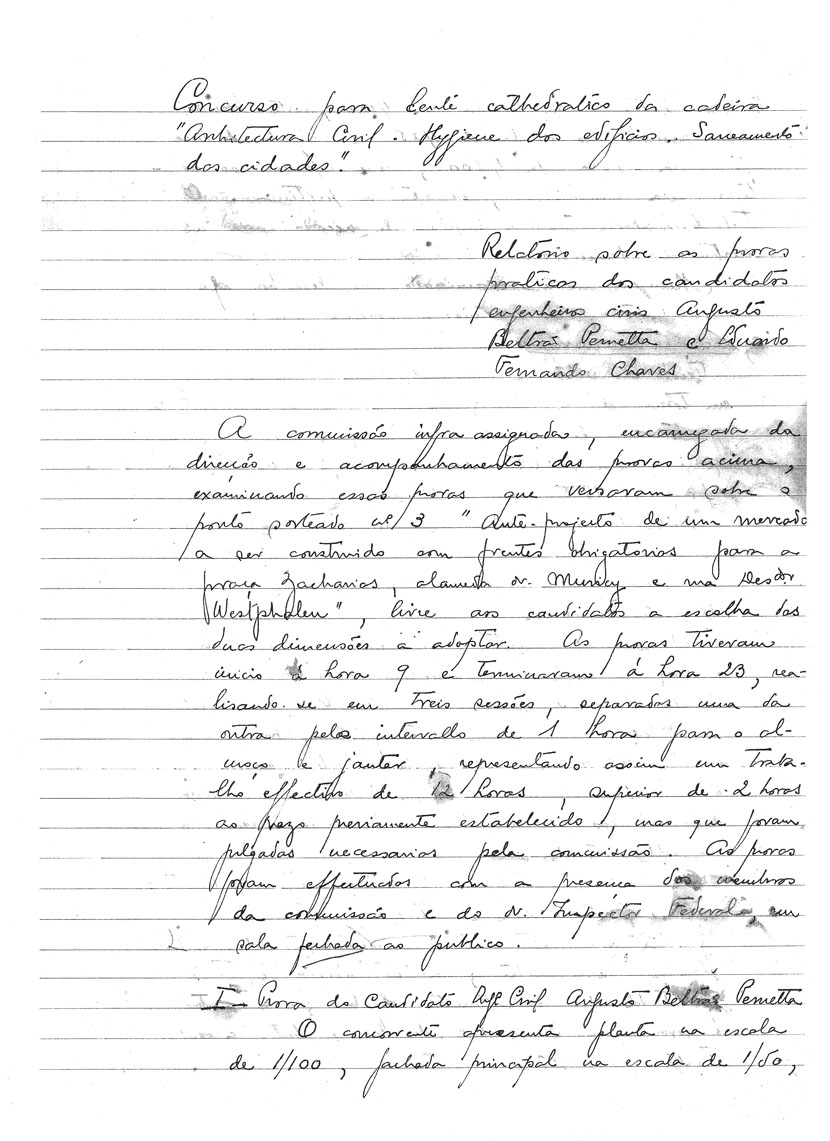 Concurso para lente cathedratico da cadeira
"Architectura Civil. Hygiene dos edificios. Saneamento
das cidades".
Relatório sobre as provas
praticas dos candidatos
engenheiros civis Augusto
Beltrão Pernetta e Eduardo
Fernando Chaves
A commissão infra assignada, encarregada da
direcção e acompanhamento das provas acima,
examinando essas provas que versaram sobre o
ponto sorteado nº 3 "Ante-projecto de um mercado
a ser construido com frentes obrigatorias para a
praça Zacharias, alameda dr. Muricy e rua Desdor
Westphalen", livre aos candidatos a escolha das
duas dimensões a adoptar. As provas tiveram
inicio á hora 9 e terminaram á hora 23, rea-
lisando-se em treis sessões, separadas uma da
outra pelo intervallo de 1 hora para o al-
moço e jantar, representando assim um traba-
lho effectivo de 12 horas, superior de 2 horas
ao prazo previamente estabelecido, mas que foram
julgadas necessarias pela commissão. As provas
foram effectuadas com a presença dos membros
da commissão e do dr. Inspector Federal, em
sala fechada ao publico.
I - Prova do Candidato Engº Civil Augusto Beltrão Pernetta
O concorrente apresenta planta na escala
de 1/100, fachada principal na escala de 1/50,